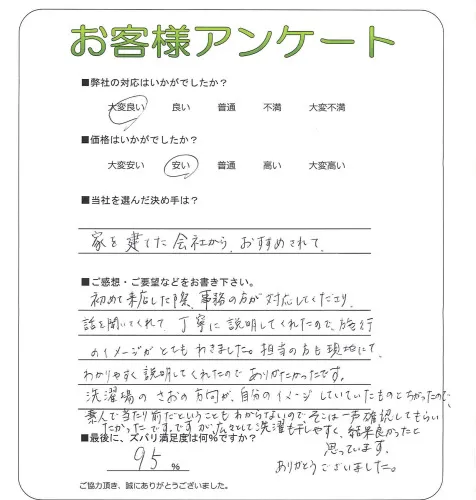 お客様アンケート
■弊社の対応はいかがでしたか？
大変良い 良い 普通 不満 大変不満
■価格はいかがでしたか？
大変安い 安い 普通 高い 大変高い
■当社を選んだ決め手は？
家を建てた会社から、おすすめされて、
■ご感想・ご要望などをお書き下さい。
初めて来店した際、事務の方が対応してくださり、
話を聞いてくれて、丁寧に説明してくれたので、施行
のイメージがとてもわきました。担当の方も現地にて、
わかりやすく説明してくれたのでありがたかったです。
洗濯場のさおの方向が、自分のイメージしていたものとちがったので、
素人で当たり前だということもわからないので、そこは一声確認してもらい
たかったです。ですが、広々として洗濯も干しやすく、結果良かったと
思っています。
ありがとうございました。
■最後に、ズバリ満足度は何％ですか？
95 ％
ご協力頂き、誠にありがとうございました。